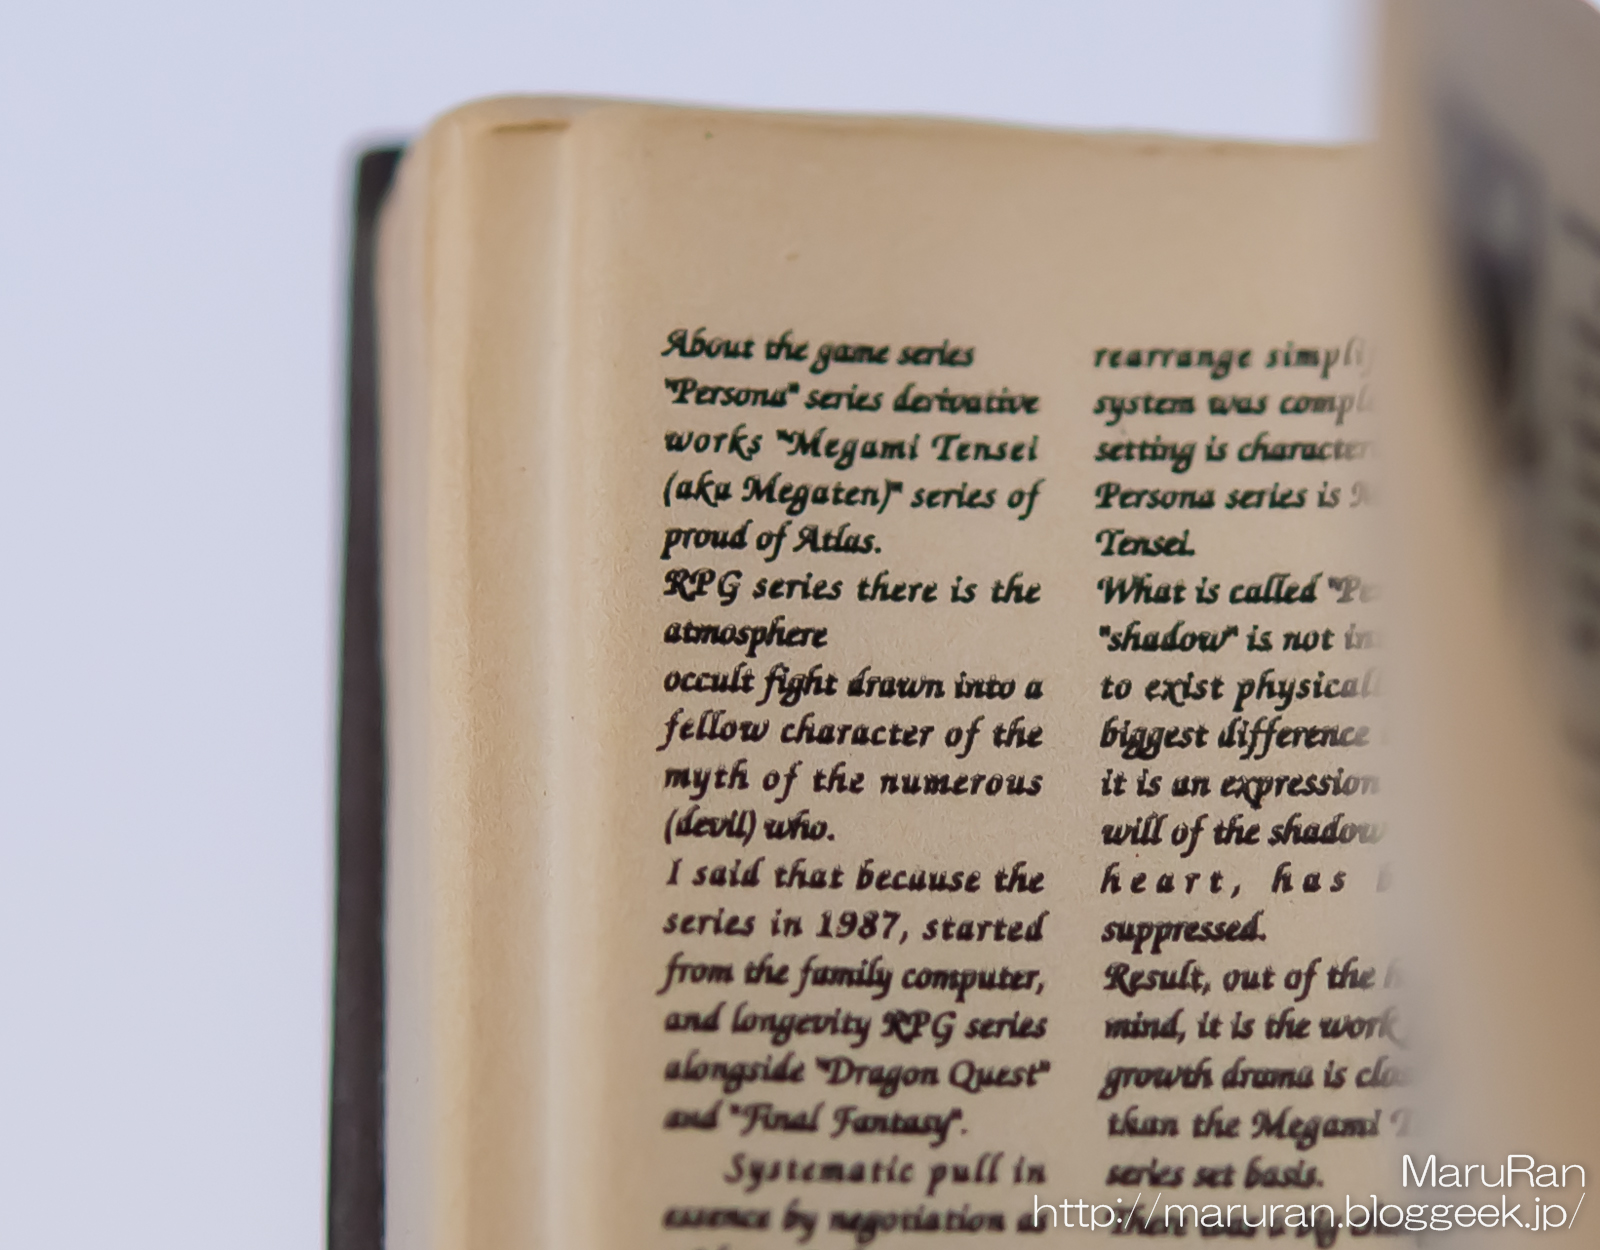 About the game series
"Persona" series derivative
works "Megami Tensei
(aka Megaten)" series of
proud of Atlas.
RPG series there is the
atmosphere
occult fight drawn into a
fellow character of the
myth of the numerous
(devil) who.
I said that because the
series in 1987, started
from the family computer,
and longevity RPG series
alongside "Dragon Quest"
and "Final Fantasy".
Systematic pull in
essence by negotiation as
rearrange
system was
setting is
Persona series is
Tensei.
What is called
"shadow" is not
to exist
biggest difference
it is an expression
will of the shadow
heart, has
suppressed.
Result, out of the
mind, it is the work
growth drama is
than the Megami
series set basis.
MaruRan
http://maruran.bloggeek.jp/